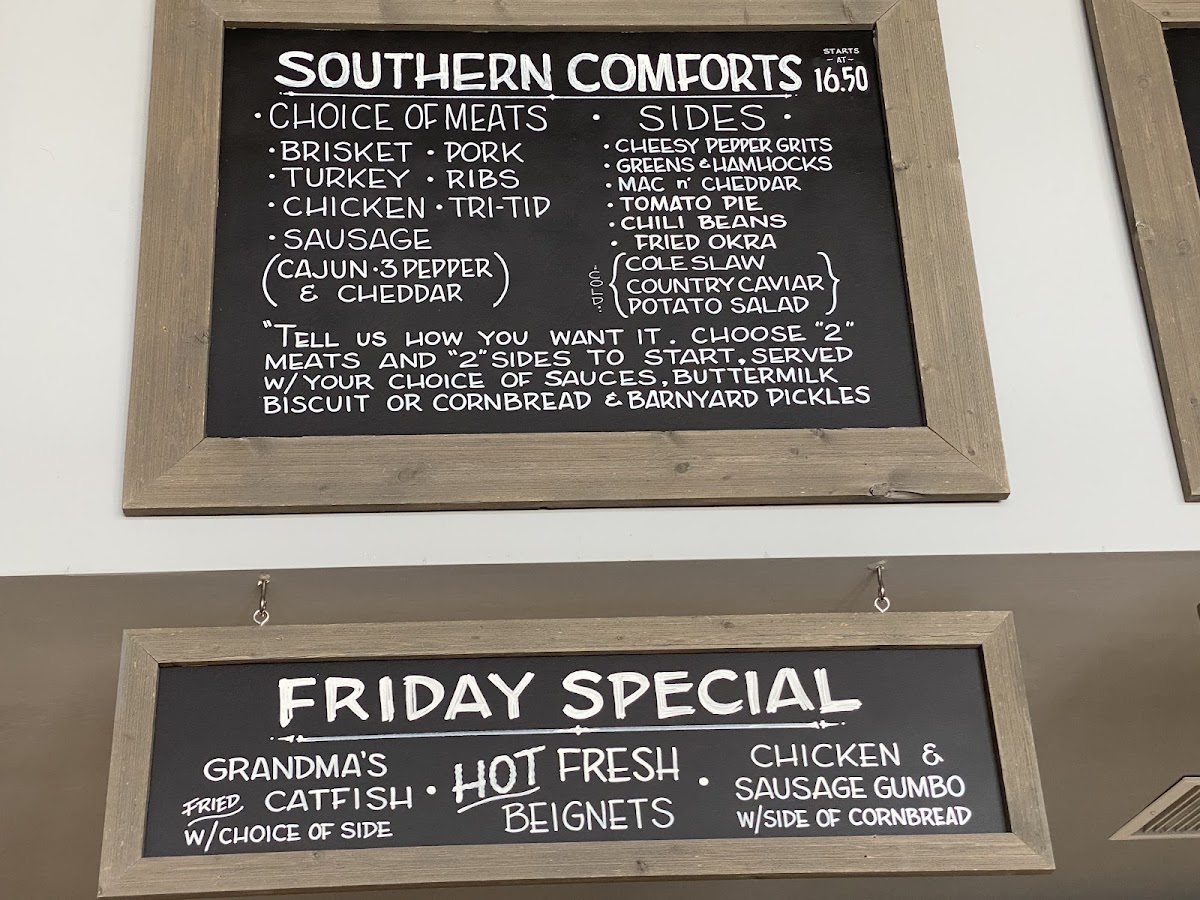 SOUTHERN COMFORTS
STARTS
- AT -
16.50
• CHOICE OF MEATS
• BRISKET • PORK
• TURKEY • RIBS
• CHICKEN • TRI-TIP
• SAUSAGE
(CAJUN • 3 PEPPER
& CHEDDAR)
• SIDES •
• CHEESY PEPPER GRITS
• GREENS & HAMHOCKS
• MAC n' CHEDDAR
• TOMATO PIE
• CHILI BEANS
• FRIED OKRA
COLD
{COLE SLAW
COUNTRY CAVIAR
POTATO SALAD}
"TELL US HOW YOU WANT IT. CHOOSE "2"
MEATS AND "2" SIDES TO START. SERVED
W/ YOUR CHOICE OF SAUCES, BUTTERMILK
BISCUIT OR CORNBREAD & BARNYARD PICKLES
FRIDAY SPECIAL
GRANDMA'S
FRIED CATFISH •
W/CHOICE OF SIDE
HOT FRESH •
BEIGNETS
CHICKEN &
SAUSAGE GUMBO
W/SIDE OF CORNBREAD